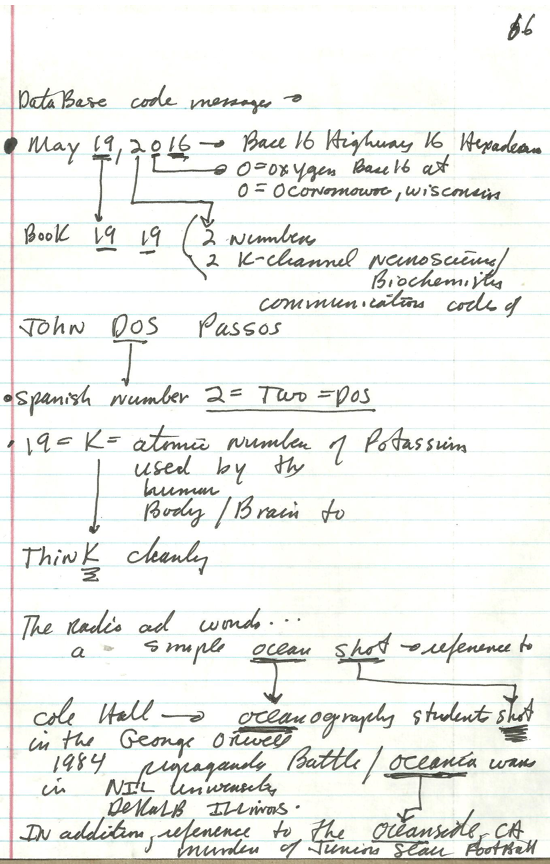 66
DataBase code messages →
• May 19, 2016 → Base 16 Highway 16 Hexadecm
0=oxygen Base 16 at
0 = Oconomowoc, wisconsin
Book 19 19 ( 2 numbers
2 K-channel neuroscience/
Biochemistry
communication codes of
John DOS Passos
• Spanish number 2 = Two = DOS
• 19 = K = atomic number of Potassium
used by the
human
Body / Brain to
ThinK clearly
The Radio ad words...
a simple ocean shot → reference to
cole Hall → oceanography students shot
in the George Orwell
1984 propaganda Battle / oceania wars
in NIL university
DeKalB Illinois.
IN addition, reference to the Oceanside, CA
murder of Junior Seau FootBall